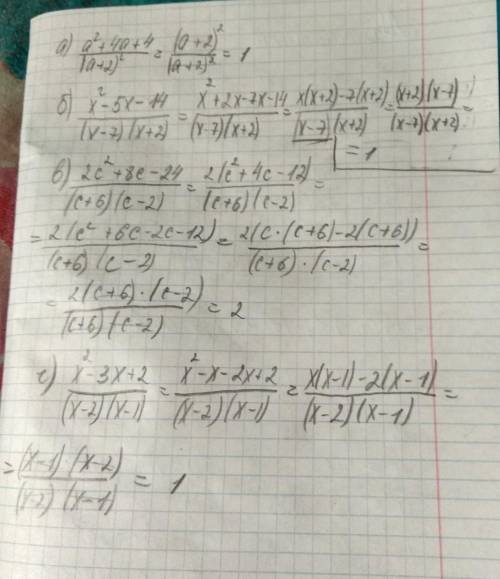 а) (a²+4a+4)/((a+2)²) = ((a+2)²)/((a+2)²) = 1
б) (x²-5x-14)/((x-7)(x+2)) = (x²+2x-7x-14)/((x-7)(x+2)) = (x(x+2)-7(x+2))/((x-7)(x+2)) = ((x+2)(x-7))/((x-7)(x+2)) =
= 1
в) (2c²+8c-24)/((c+6)(c-2)) = (2(c²+4c-12))/((c+6)(c-2)) =
= (2(c²+6c-2c-12))/((c+6)(c-2)) = (2(c·(c+6)-2(c+6)))/((c+6)·(c-2)) =
= (2(c+6)·(c-2))/((c+6)(c-2)) = 2
г) (x²-3x+2)/((x-2)(x-1)) = (x²-x-2x+2)/((x-2)(x-1)) = (x(x-1)-2(x-1))/((x-2)(x-1)) =
= ((x-1)(x-2))/((x-2)(x-1)) = 1